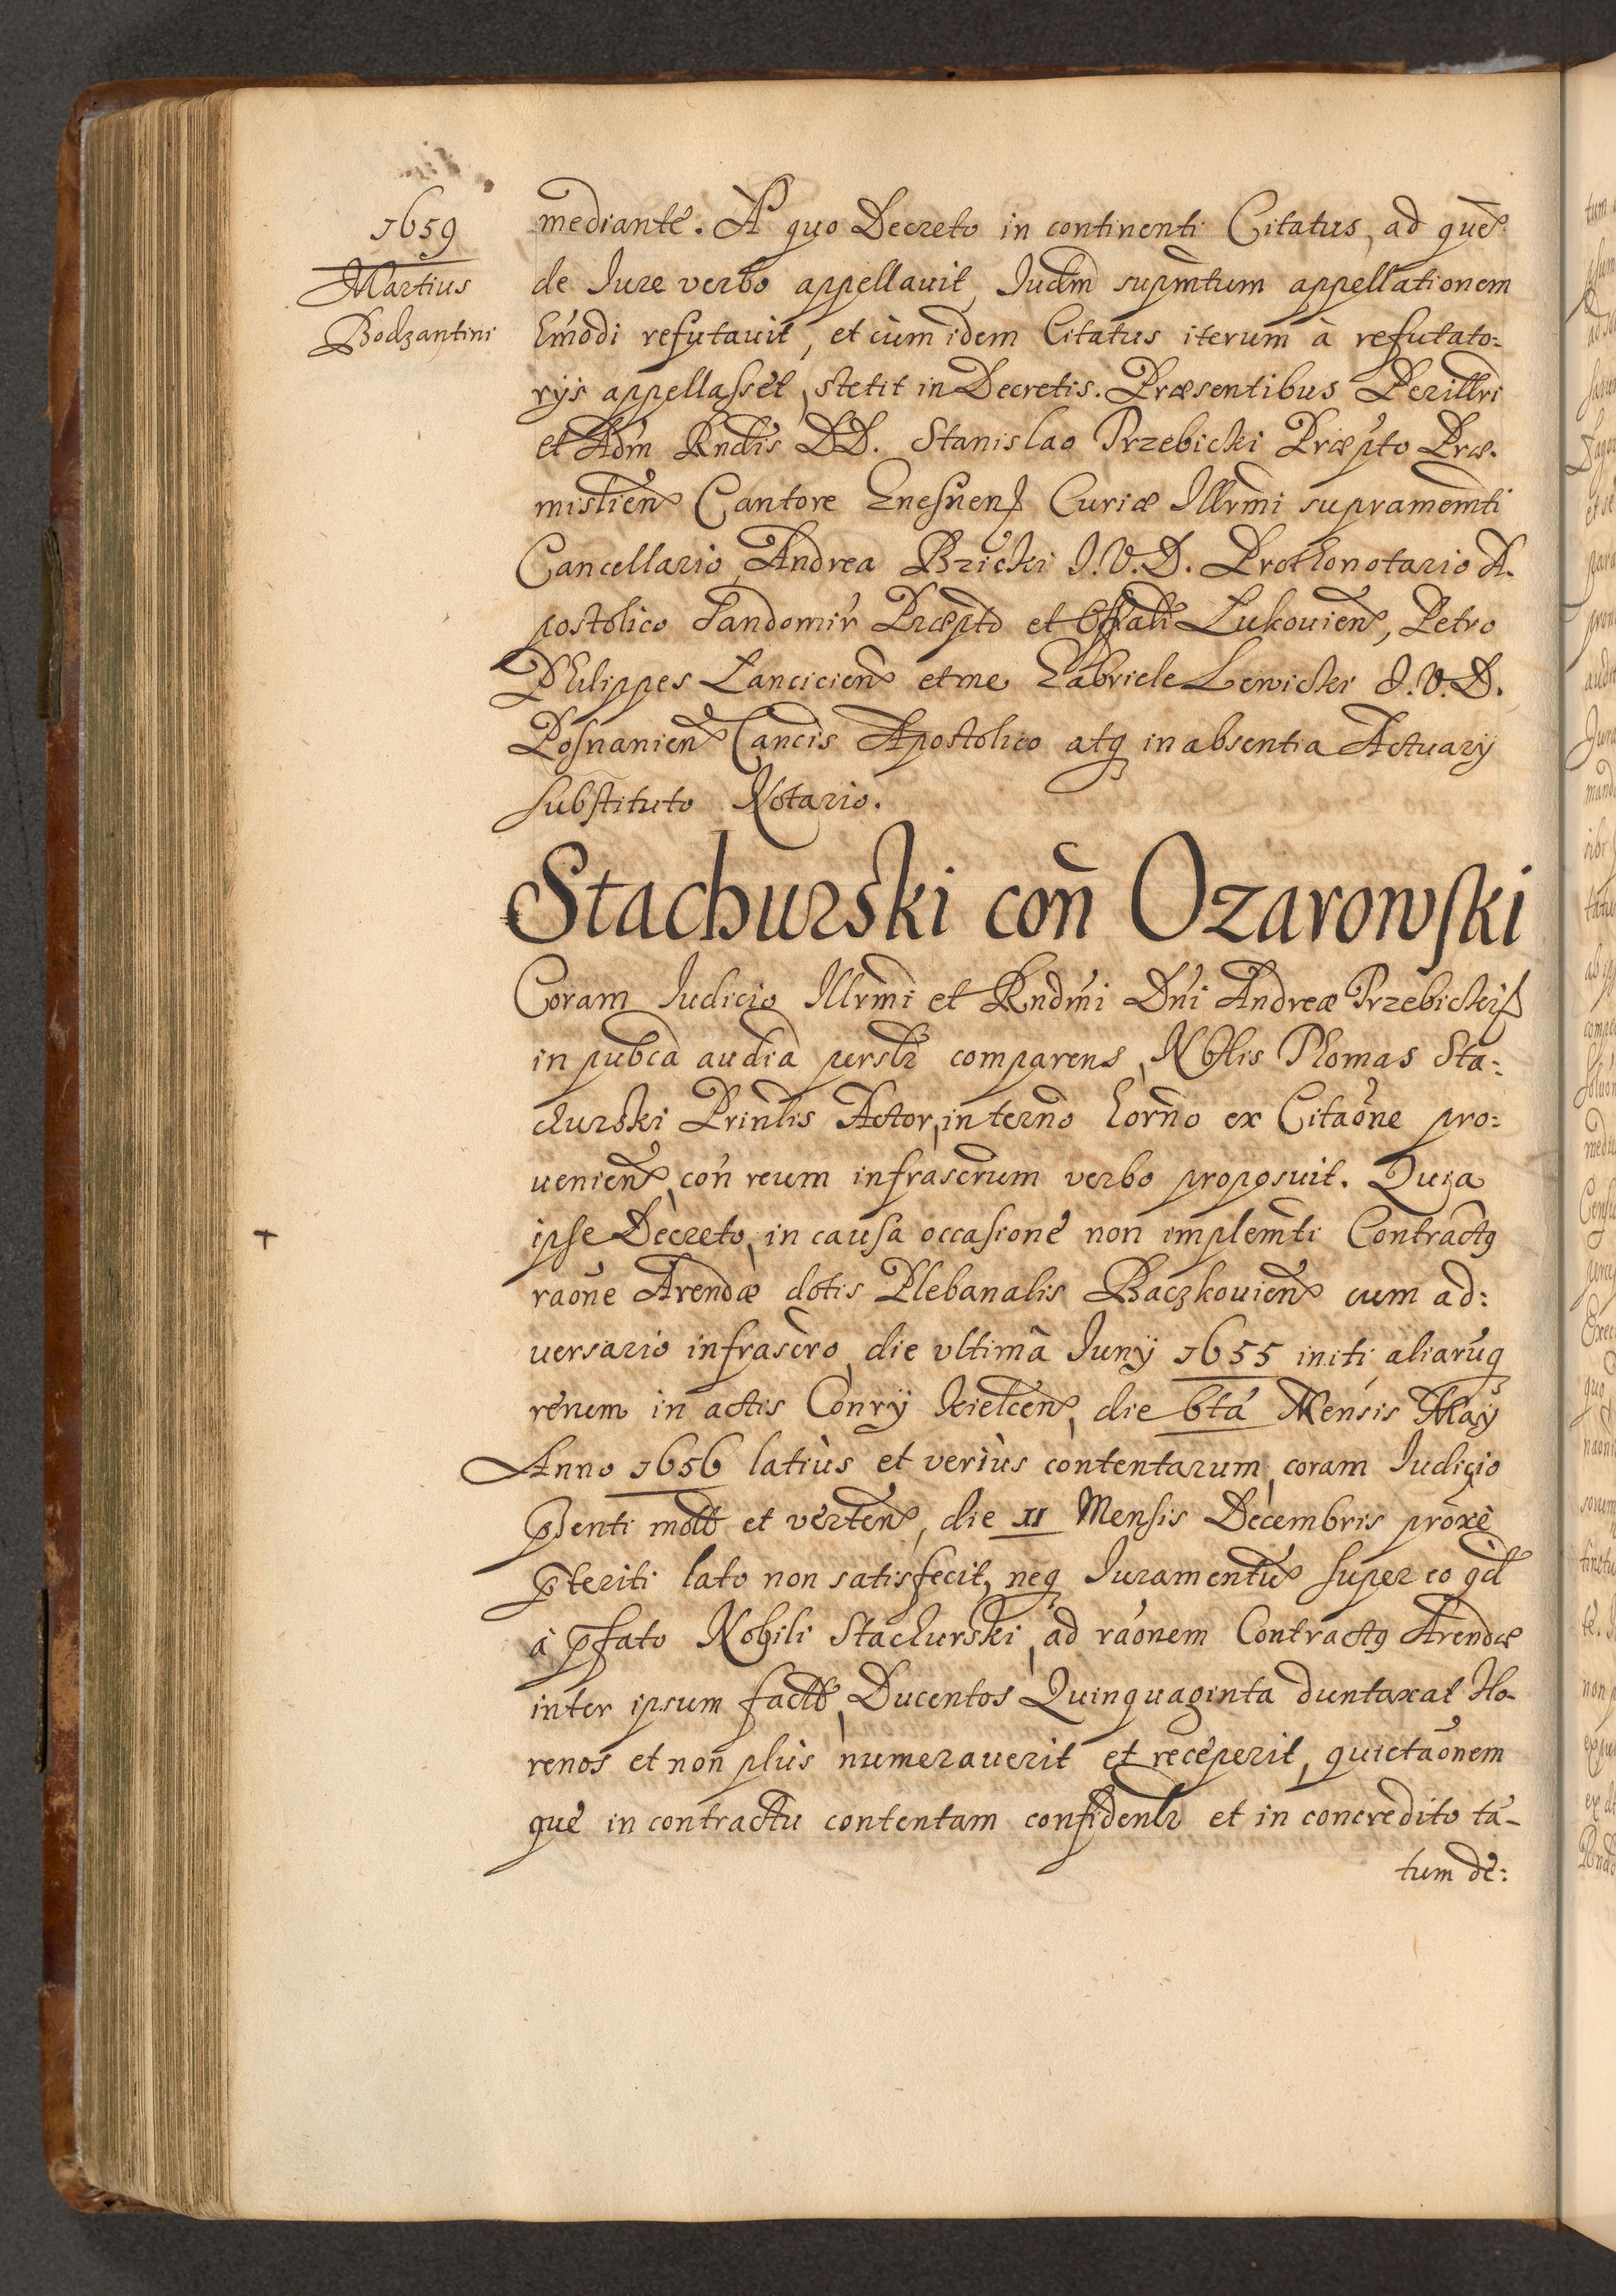 1659
Martius
Bodzantini
mediante. A quo Decreto in continenti Citatus, ad quē
de Iure verbo appellauit, Iudm supmtum appellationem
hmōdi refutauit, et cùm idem Citatus iterum à refutato:
rijs appellasset, stetit in Decretis. Præsentibus Perillri
et Adm Rndis DD. Stanislao Trzebicki Præpto Præ-
mislien Cantore Gnesnens Curiæ Illrmi supramemti
Cancellario, Andrea Bzicki I.V.D. Prothonotario A-
postolico Sandomir Præpto et Offiali Lukouien, Petro
Philippes Lancicien et me Gabriele Lewicki I.V.D.
Posnanien Cancis Apostolico atq in absentia Actuarij
substituto Notario.
Stachurski coñ Ozarowski
Coram Iudicio Illrmi et Rndmi Dni Andreæ Trzebicki
in pubca audia persltr comparens, Nblis Thomas Sta:
churski Prinlis Actor, in terno horno ex Citaōne pro:
uenien, coñ reum infrascrum verbo proposuit. Quia
ipse Decreto, in causa occasione non implemti Contractq
raōne Arendæ dotis Plebanalis Baczkouien cum ad:
uersario infrascro, die vltimâ Iunij 1655 initi, aliarūq
rerum in actis Conrij Kielcen, die 6ta Mensis Maij
Anno 1656 latiùs et veriùs contentarum, coram Iudicio
p̄senti mott et verten, die 11 Mensis Decembris proxè
p̄teriti lato non satisfecit, neq Iuramentū super eo qd
à p̄fato Nobili Stachurski, ad raōnem Contractq Arendæ
inter ipsum fact, Ducentos Quinquaginta duntaxat Flo-
renos et non plùs numerauerit et receperit, quietaōnem
què in contractu contentam confidentr et in concredito tā-
tum de: